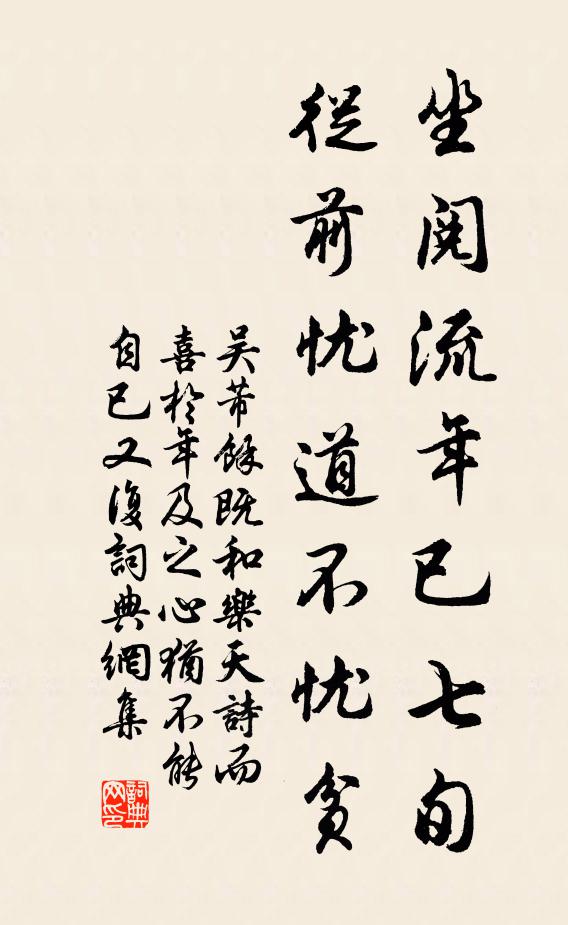 坐閱流年已七旬
從前忧道不忧貧
吴芾餘既和樂天詩而
喜於年及之心猶不能
自已又復詞典網集
詞典网印